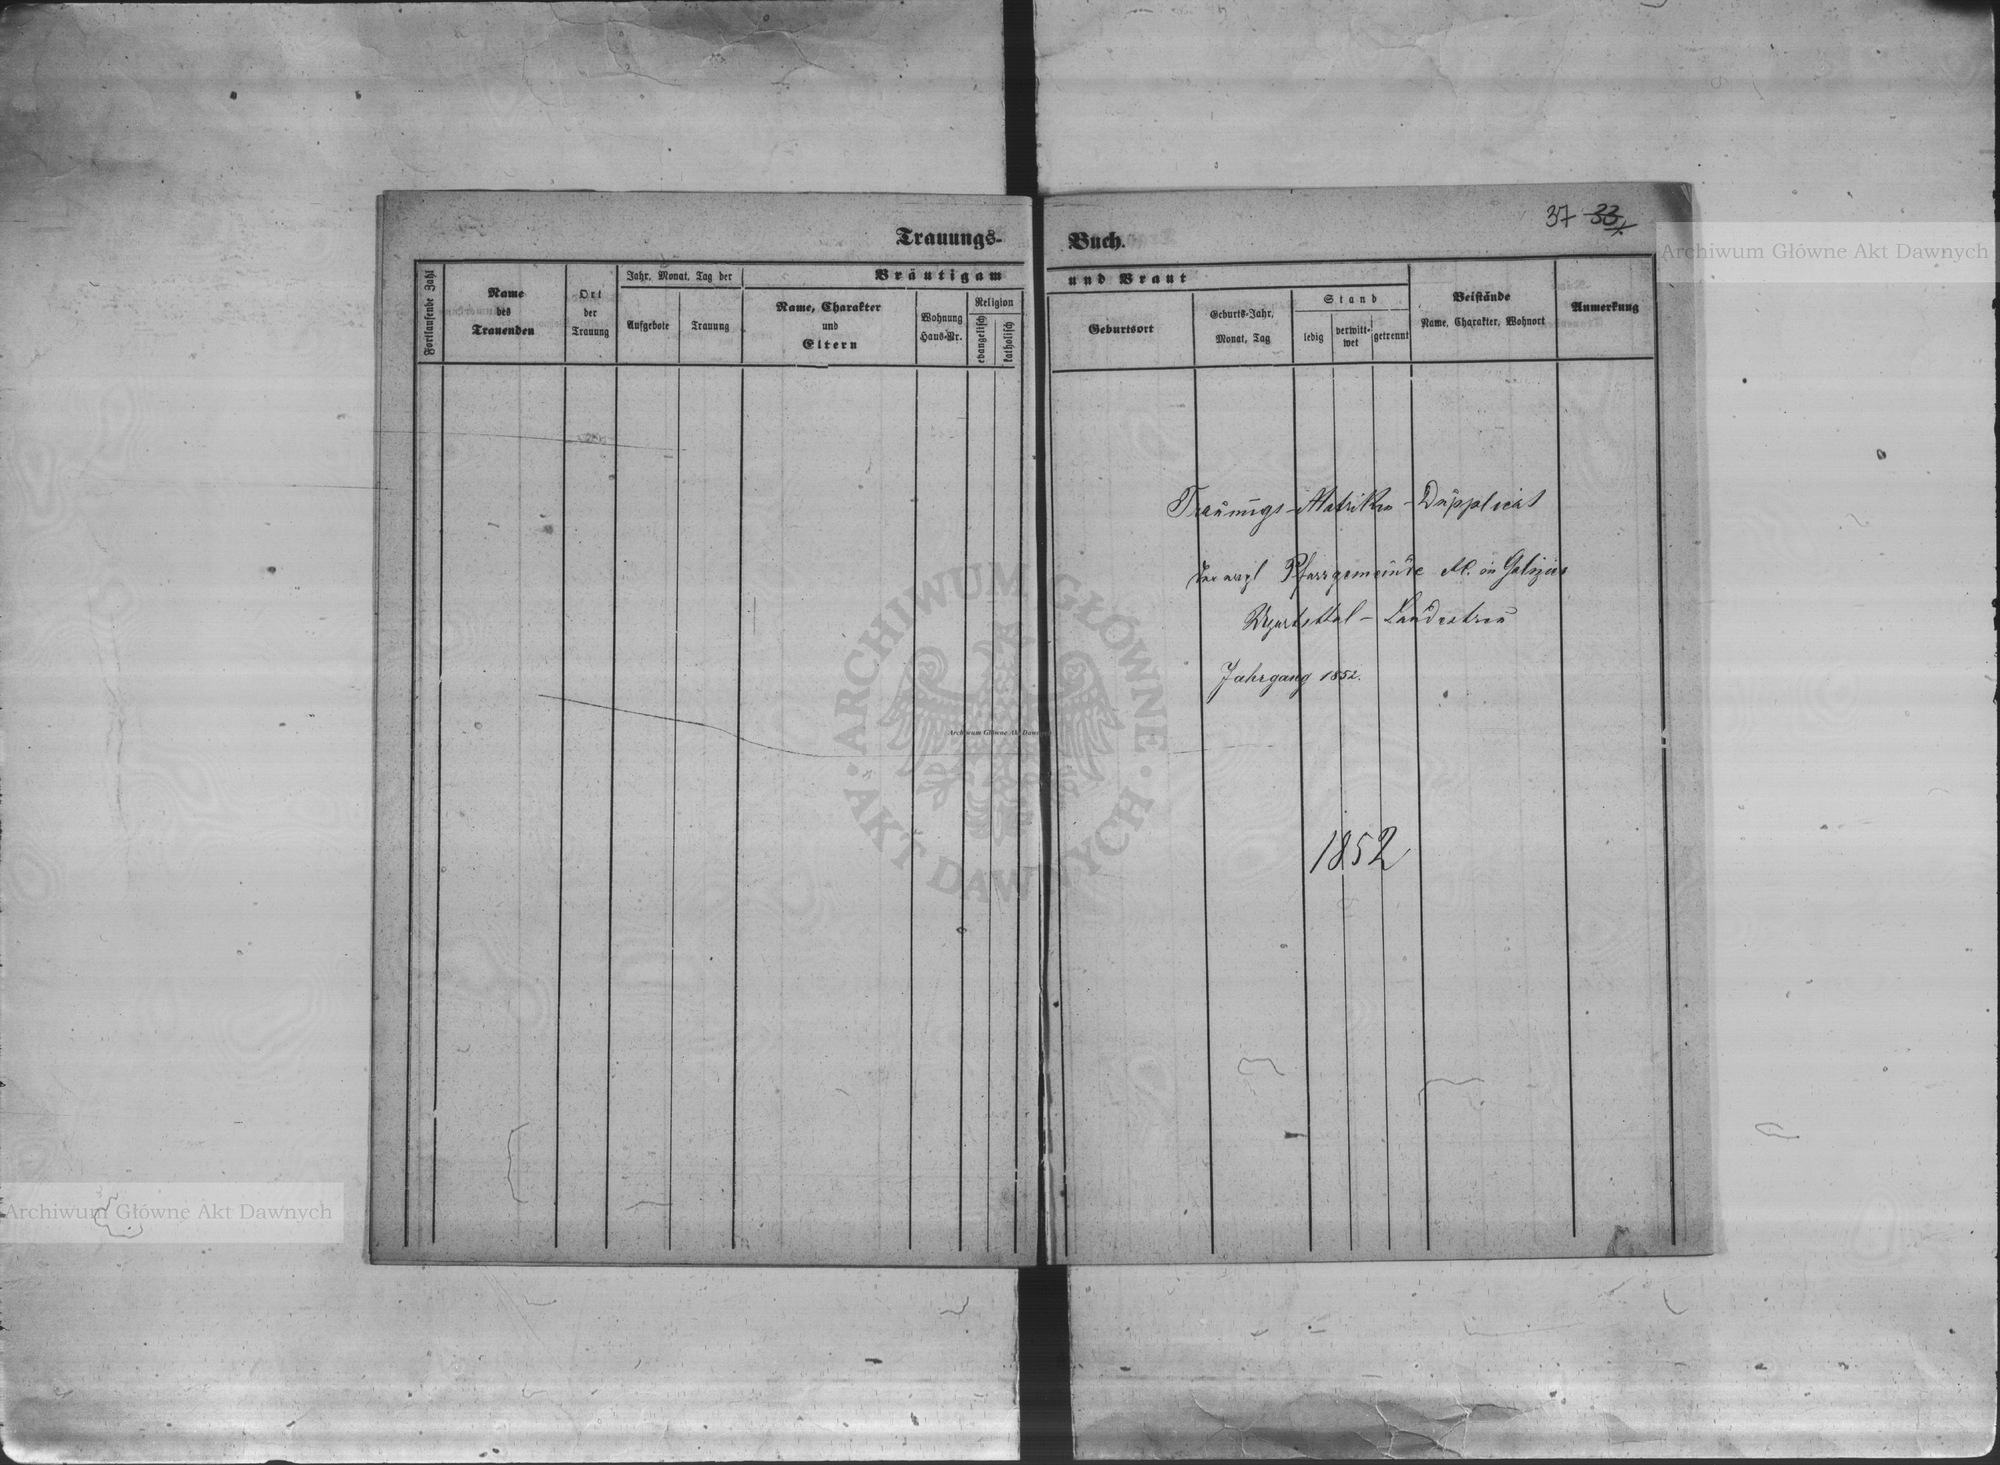 37 33
Trauungs- Buch.
Fortlaufende Zahl
Name
des
Trauenden
Ort
der
Trauung
Jahr, Monat, Tag der
Aufgebote
Trauung
Bräutigam und Braut
Name, Charakter
und
Eltern
Wohnung
Haus-Nr.
Religion
evangelisch
katholisch
Geburtsort
Geburts-Jahr,
Monat, Tag
Stand
ledig
verwitt-
wet
getrennt
Beistände
Name, Charakter, Wohnort
Anmerkung
Trauungs-Matriken-Dupplicat
der evgl Pfarrgemeinde A.C. in Galizien
Ugartsthal - Landestreu
Jahrgang 1852.
1852
Archiwum Główne Akt Dawnych
ARCHIWUM GŁÓWNE
AKT DAWNYCH
Archiwum Główne Akt Dawnych
Archiwum Główne Akt Dawnych